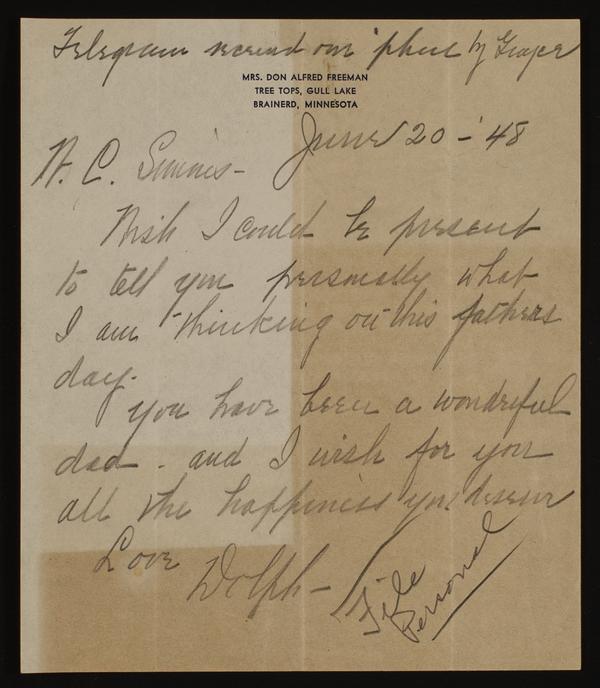 Telegram received over 'phone by Grace
MRS. DON ALFRED FREEMAN
TREE TOPS, GULL LAKE
BRAINERD, MINNESOTA
June 20 - '48
W. C. Simms -
Wish I could be present
to tell you personally what
I am thinking on this fathers
day.
You have been a wonderful
dad - and I wish for you
all the happiness you deserve
Love
Dolph -
File
Personal